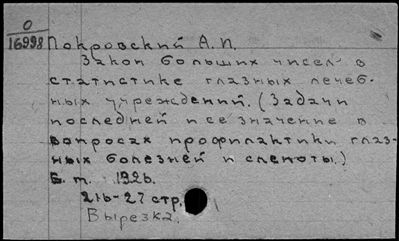 0
16998
Покровский А.И.
Закон больших чисел в
статистике глазных лечеб-
ных учреждений. (Задачи
последней и ее значение в
вопросах профилактики глаз-
ных болезней и слепоты.)
Б. т. 1926.
216-27 стр.
Вырезка.